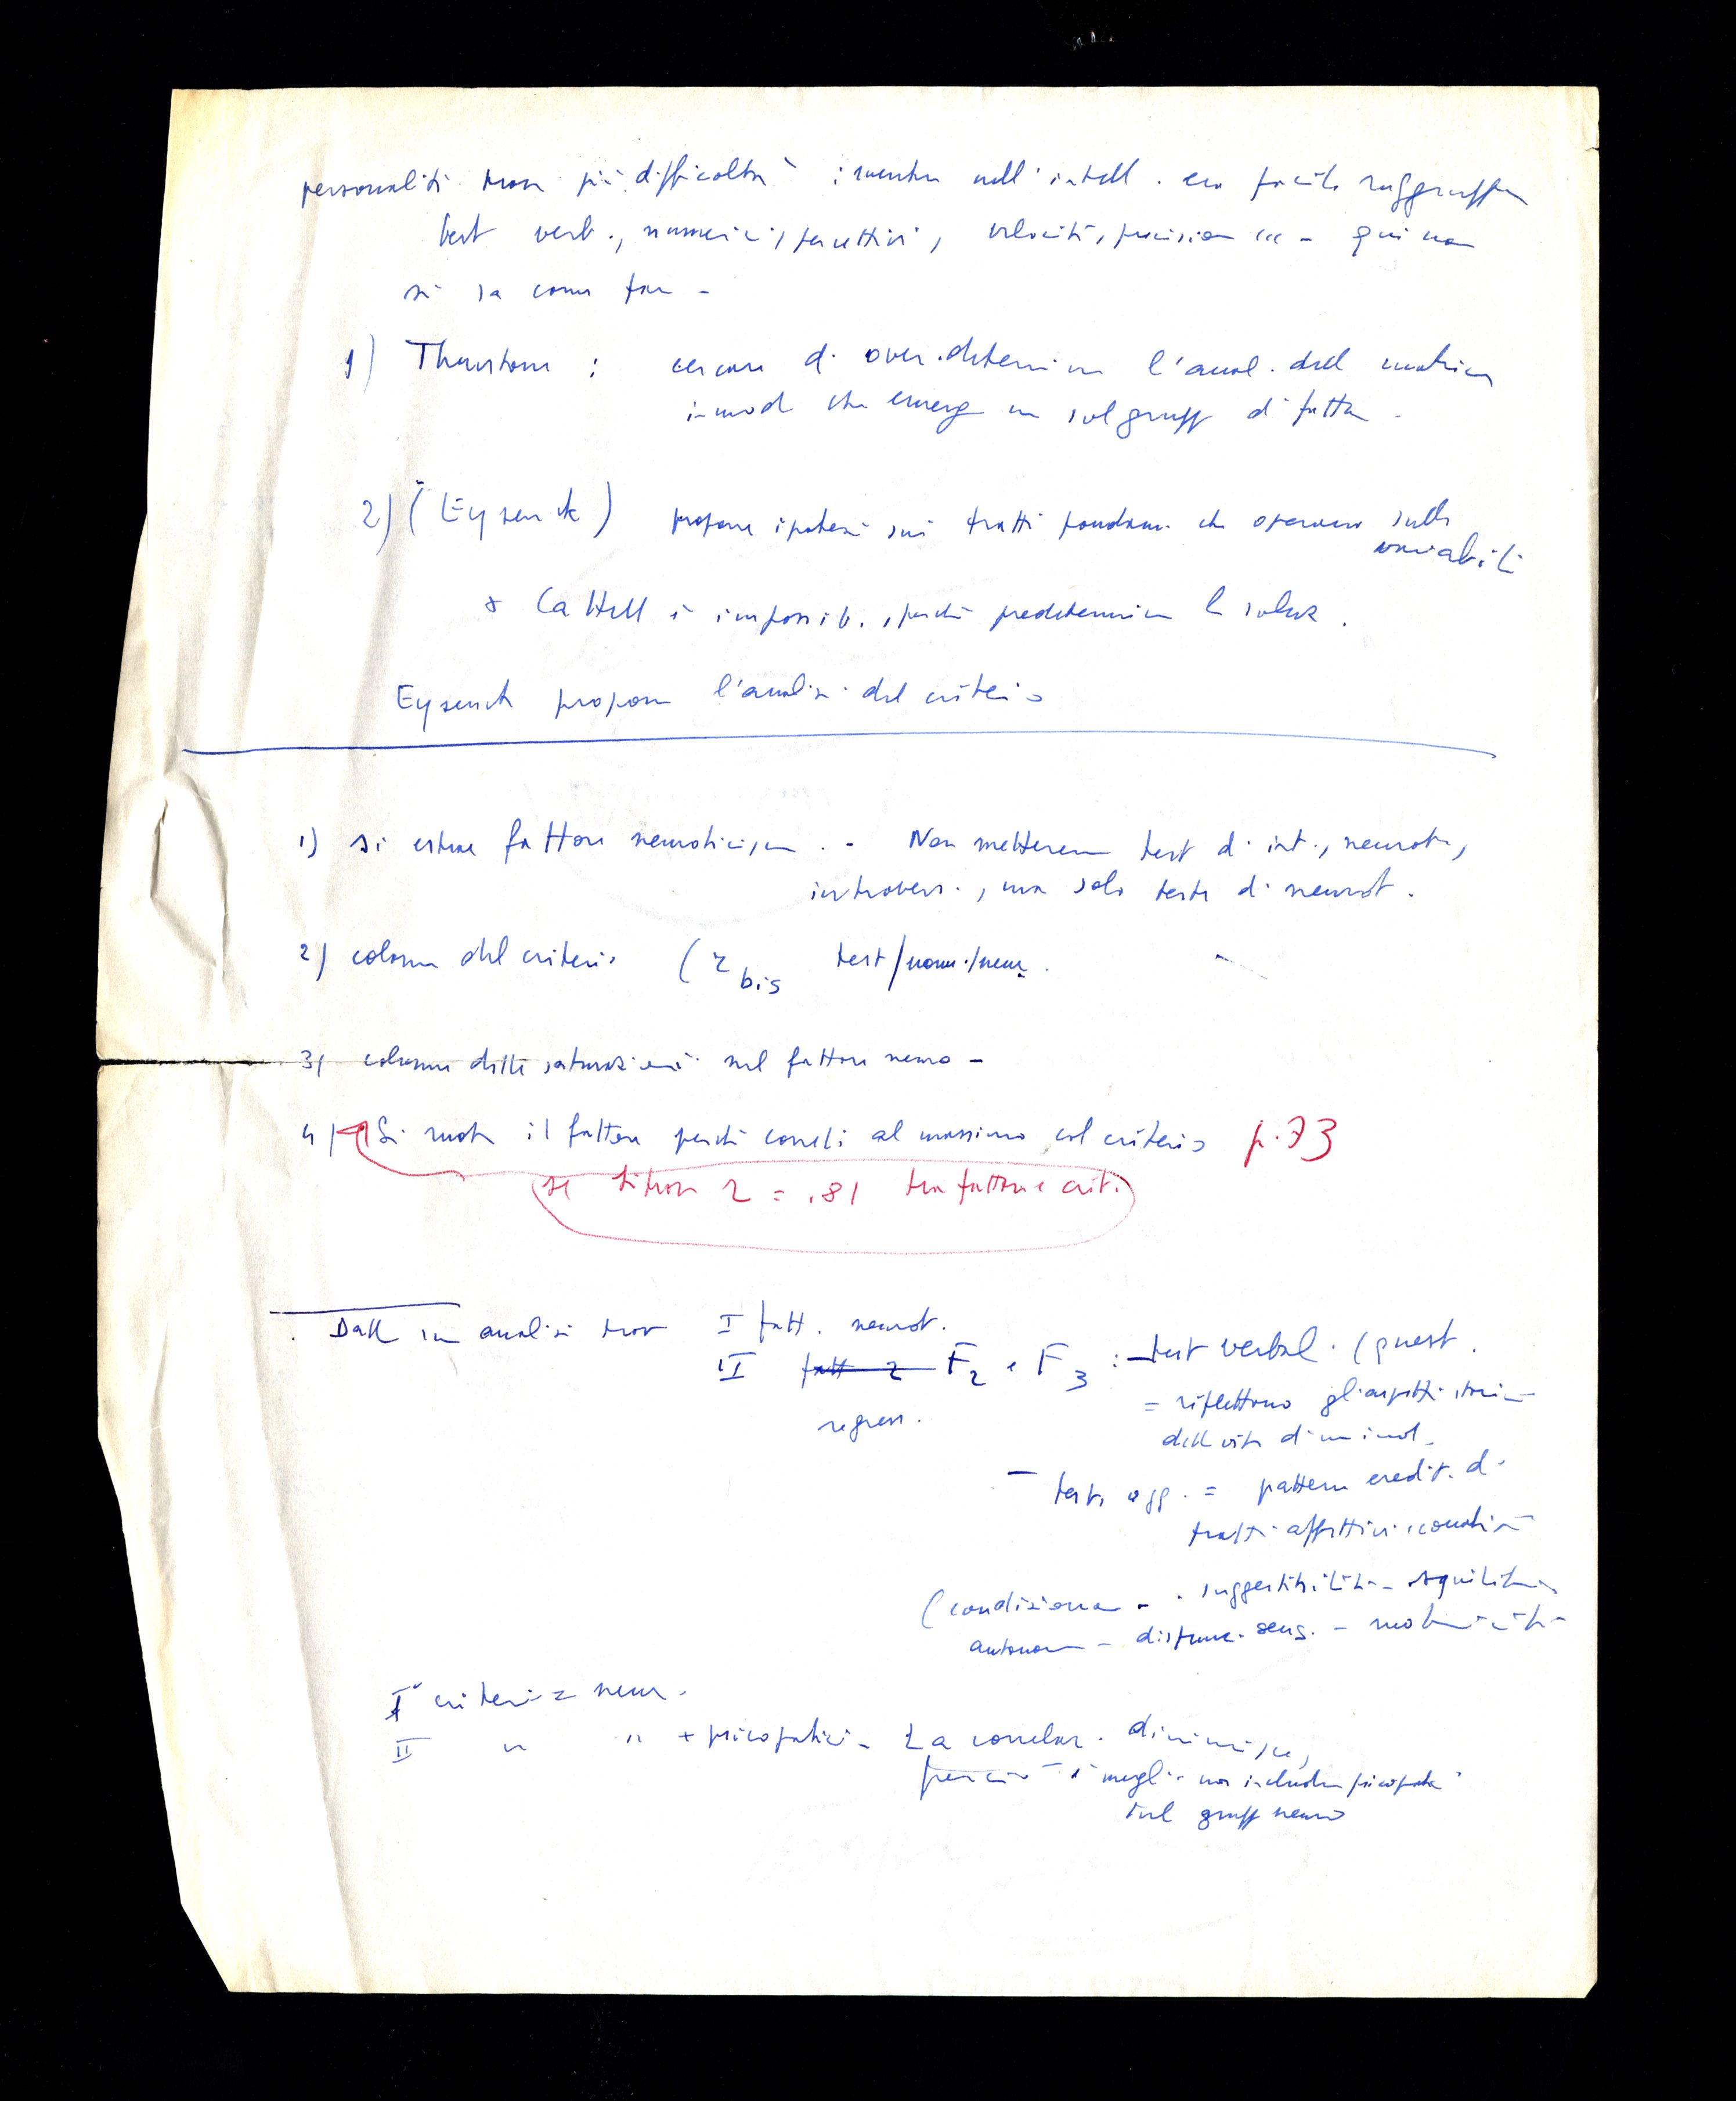 personalità trova più difficoltà : mentre nell'intell. era facile raggruppare
test verb., numerici, percettivi, velocità, precision ecc - qui non
si sa come fare -
1) Thurstone : cercare di over.determinare l'anal. del matrice
in modo che emerge un sol grupp di fatto.
2) (Eysenck) propone ipotesi sui tratti fondam. che operano sulle
variabili
x Cattell è impossib., perché predetermina la soluz.
Eysenck propone l'analisi del criterio
1) si estrae fattore neuroticism - Non metteremo test d. int., neurot.,
introvers., ma solo tests di neurot.
2) colonna del criterio (r bis test/norm./neur.
3) colonna delle saturazioni nel fattore neuro -
4) Si ruota il fattore perché correli al massimo col criterio p. 73
si trova r = .81 tra fattore e crit.
. Dall analisi trov I fatt. neurot.
II fatt 2 F2 e F3 : - test verbal. (quest.
regress.
= riflettono gli aspetti storici
dell vita di un ind.
- tests ogg. = pattern eredit. d.
tratti affettivi e conativi
(condizionam - suggestibilità - equilibrio
autonom - sens. - motricità
I criterio = neur.
II " " + psicopatici - La correlaz. diminuisce,
perciò è meglio non includere psicopatici
nel grupp neuro